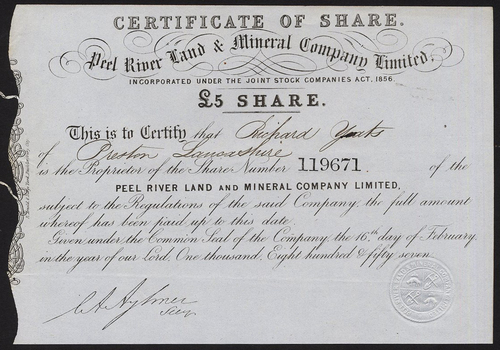 CERTIFICATE OF SHARE.
Peel River Land & Mineral Company Limited.
INCORPORATED UNDER THE JOINT STOCK COMPANIES ACT, 1856.
£5 SHARE.
This is to Certify that Richard Yeats
of Preston Lancashire
is the Proprietor of the Share Number 119671. of the
PEEL RIVER LAND AND MINERAL COMPANY LIMITED,
subject to the Regulations of the said Company, the full amount
whereof has been paid up to this date.
Given under the Common Seal of the Company, the 16th day of February
in the year of our Lord, One thousand, Eight hundred & fifty seven.
Secy.